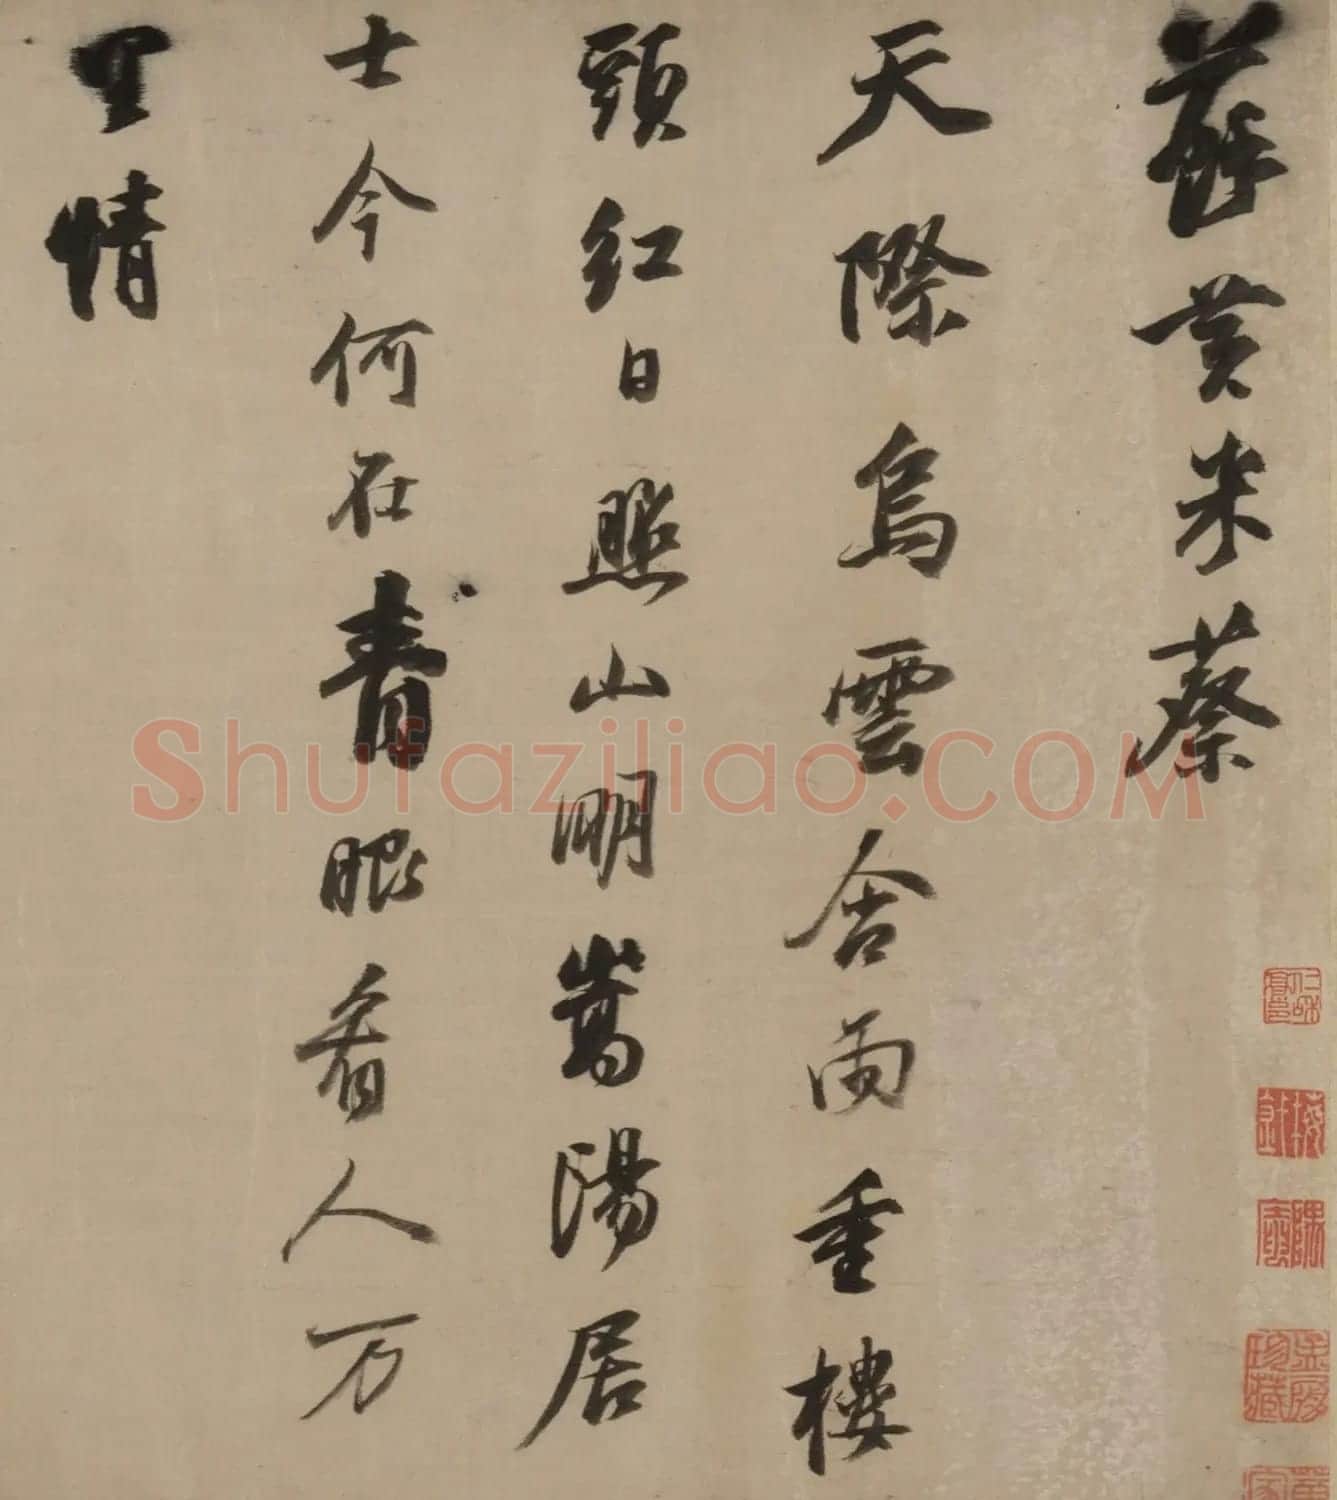 蘇黄米蔡
天際烏雲含雨重樓
頭紅日照山明嵩陽居
士今何在青眼看人万
里情
Shufaziliao.COM